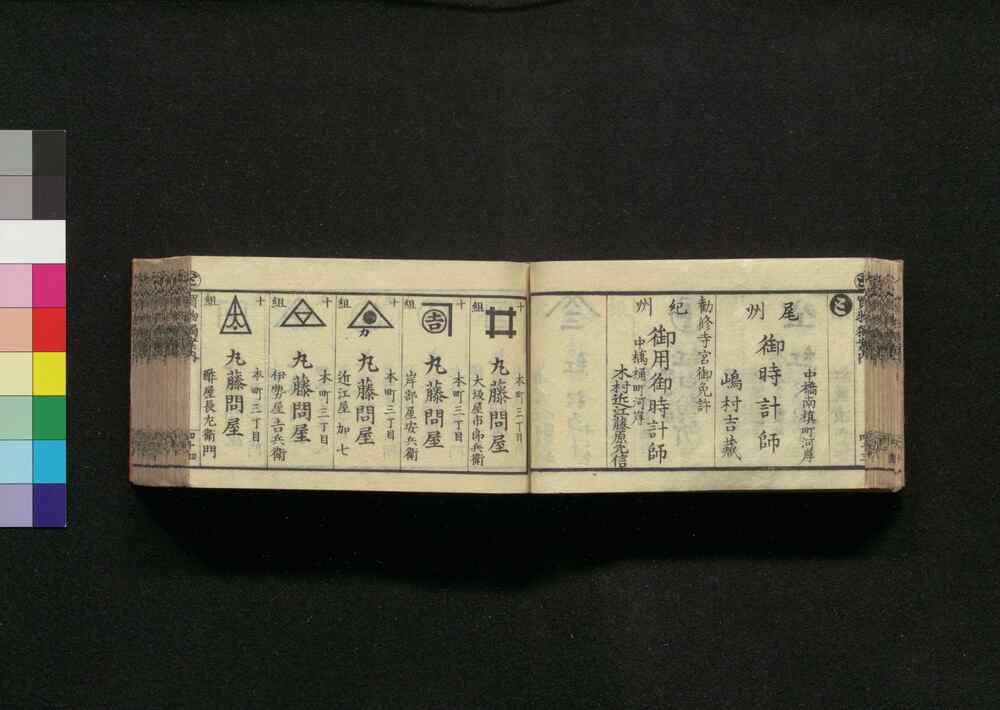 と
尾州
中橋南槙町河岸
御時計師
嶋村吉蔵
勧修寺宮御免許
紀州
御用御時計師
中橋桶町河岸
木村近江藤原元信
十組
本町三丁目
丸藤問屋
大坂屋市郎兵衛
十組
吉
本町三丁目
丸藤問屋
岸部屋安兵衛
十組
カ
本町三丁目
丸藤問屋
近江屋加七
十組
本町三丁目
丸藤問屋
伊勢屋吉兵衛
十組
本町三丁目
丸藤問屋
酢屋長左衛門